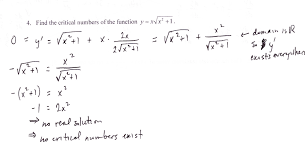 4. Find the critical numbers of the function y = x√x²+1.
0 = y' = √x²+1 + x · 2x / 2√x²+1 = √x²+1 + x² / √x²+1 ← domain is ℝ
so y'
exists everywhere
-√x²+1 = x² / √x²+1
-(x²+1) = x²
-1 = 2x²
⇒ no real solution
⇒ no critical numbers exist